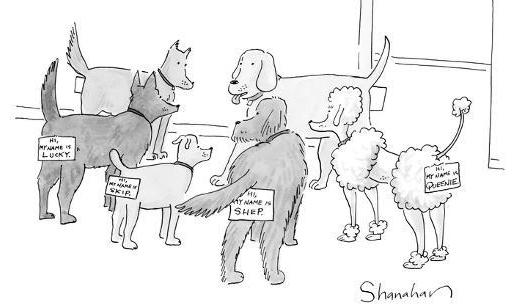 HI,
MY NAME IS
LUCKY.
HI,
MY NAME IS
SKIP.
HI,
MY NAME IS
SHEP.
HI,
MY NAME IS
QUEENIE.
Shanahan